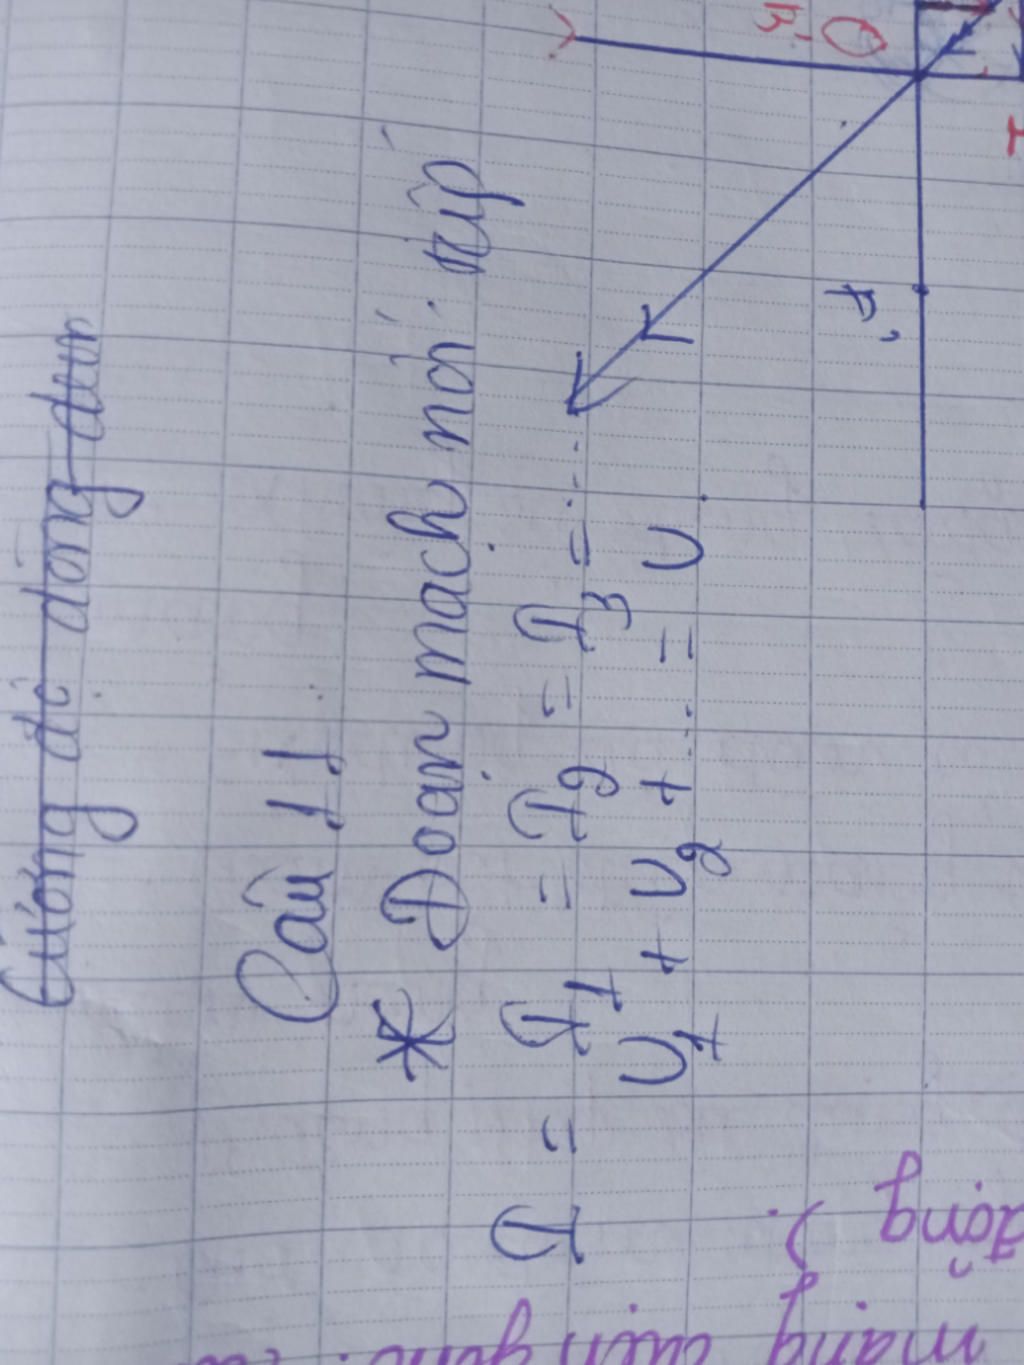 Cường độ dòng điện
Câu 11
* Đoạn mạch nối tiếp
I = I1 = I2 = I3 = ...
U1 + U2 + ... = U
F'
O
I
động ).